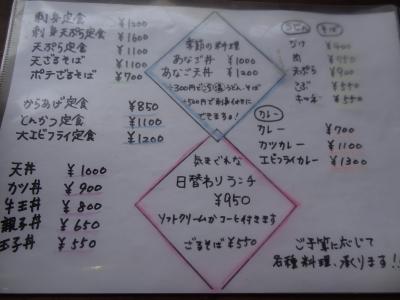 刺身定食 ¥1200
刺身天ぷら定食 ¥1600
天ぷら定食 ¥1100
天ざるそば ¥1100
ポテざるそば ¥700
からあげ定食 ¥850
とんかつ定食 ¥1100
大エビフライ定食 ¥1200
天丼 ¥1000
カツ丼 ¥900
牛玉丼 ¥800
親子丼 ¥650
玉子丼 ¥550
季節の料理
あなご丼 ¥1000
あなご天丼 ¥1200
うどん、そば
できます!
気まぐれな
日替わりランチ
¥950
ソフトクリームかコーヒ付きます
ざるそば ¥550
うどん そば
肉 ¥950
天ぷら ¥900
こぶ ¥550
¥550
カレー
カレー ¥700
カツカレー ¥1100
エビフライカレー ¥1300
ご予算に応じて
各種料理、承ります!!